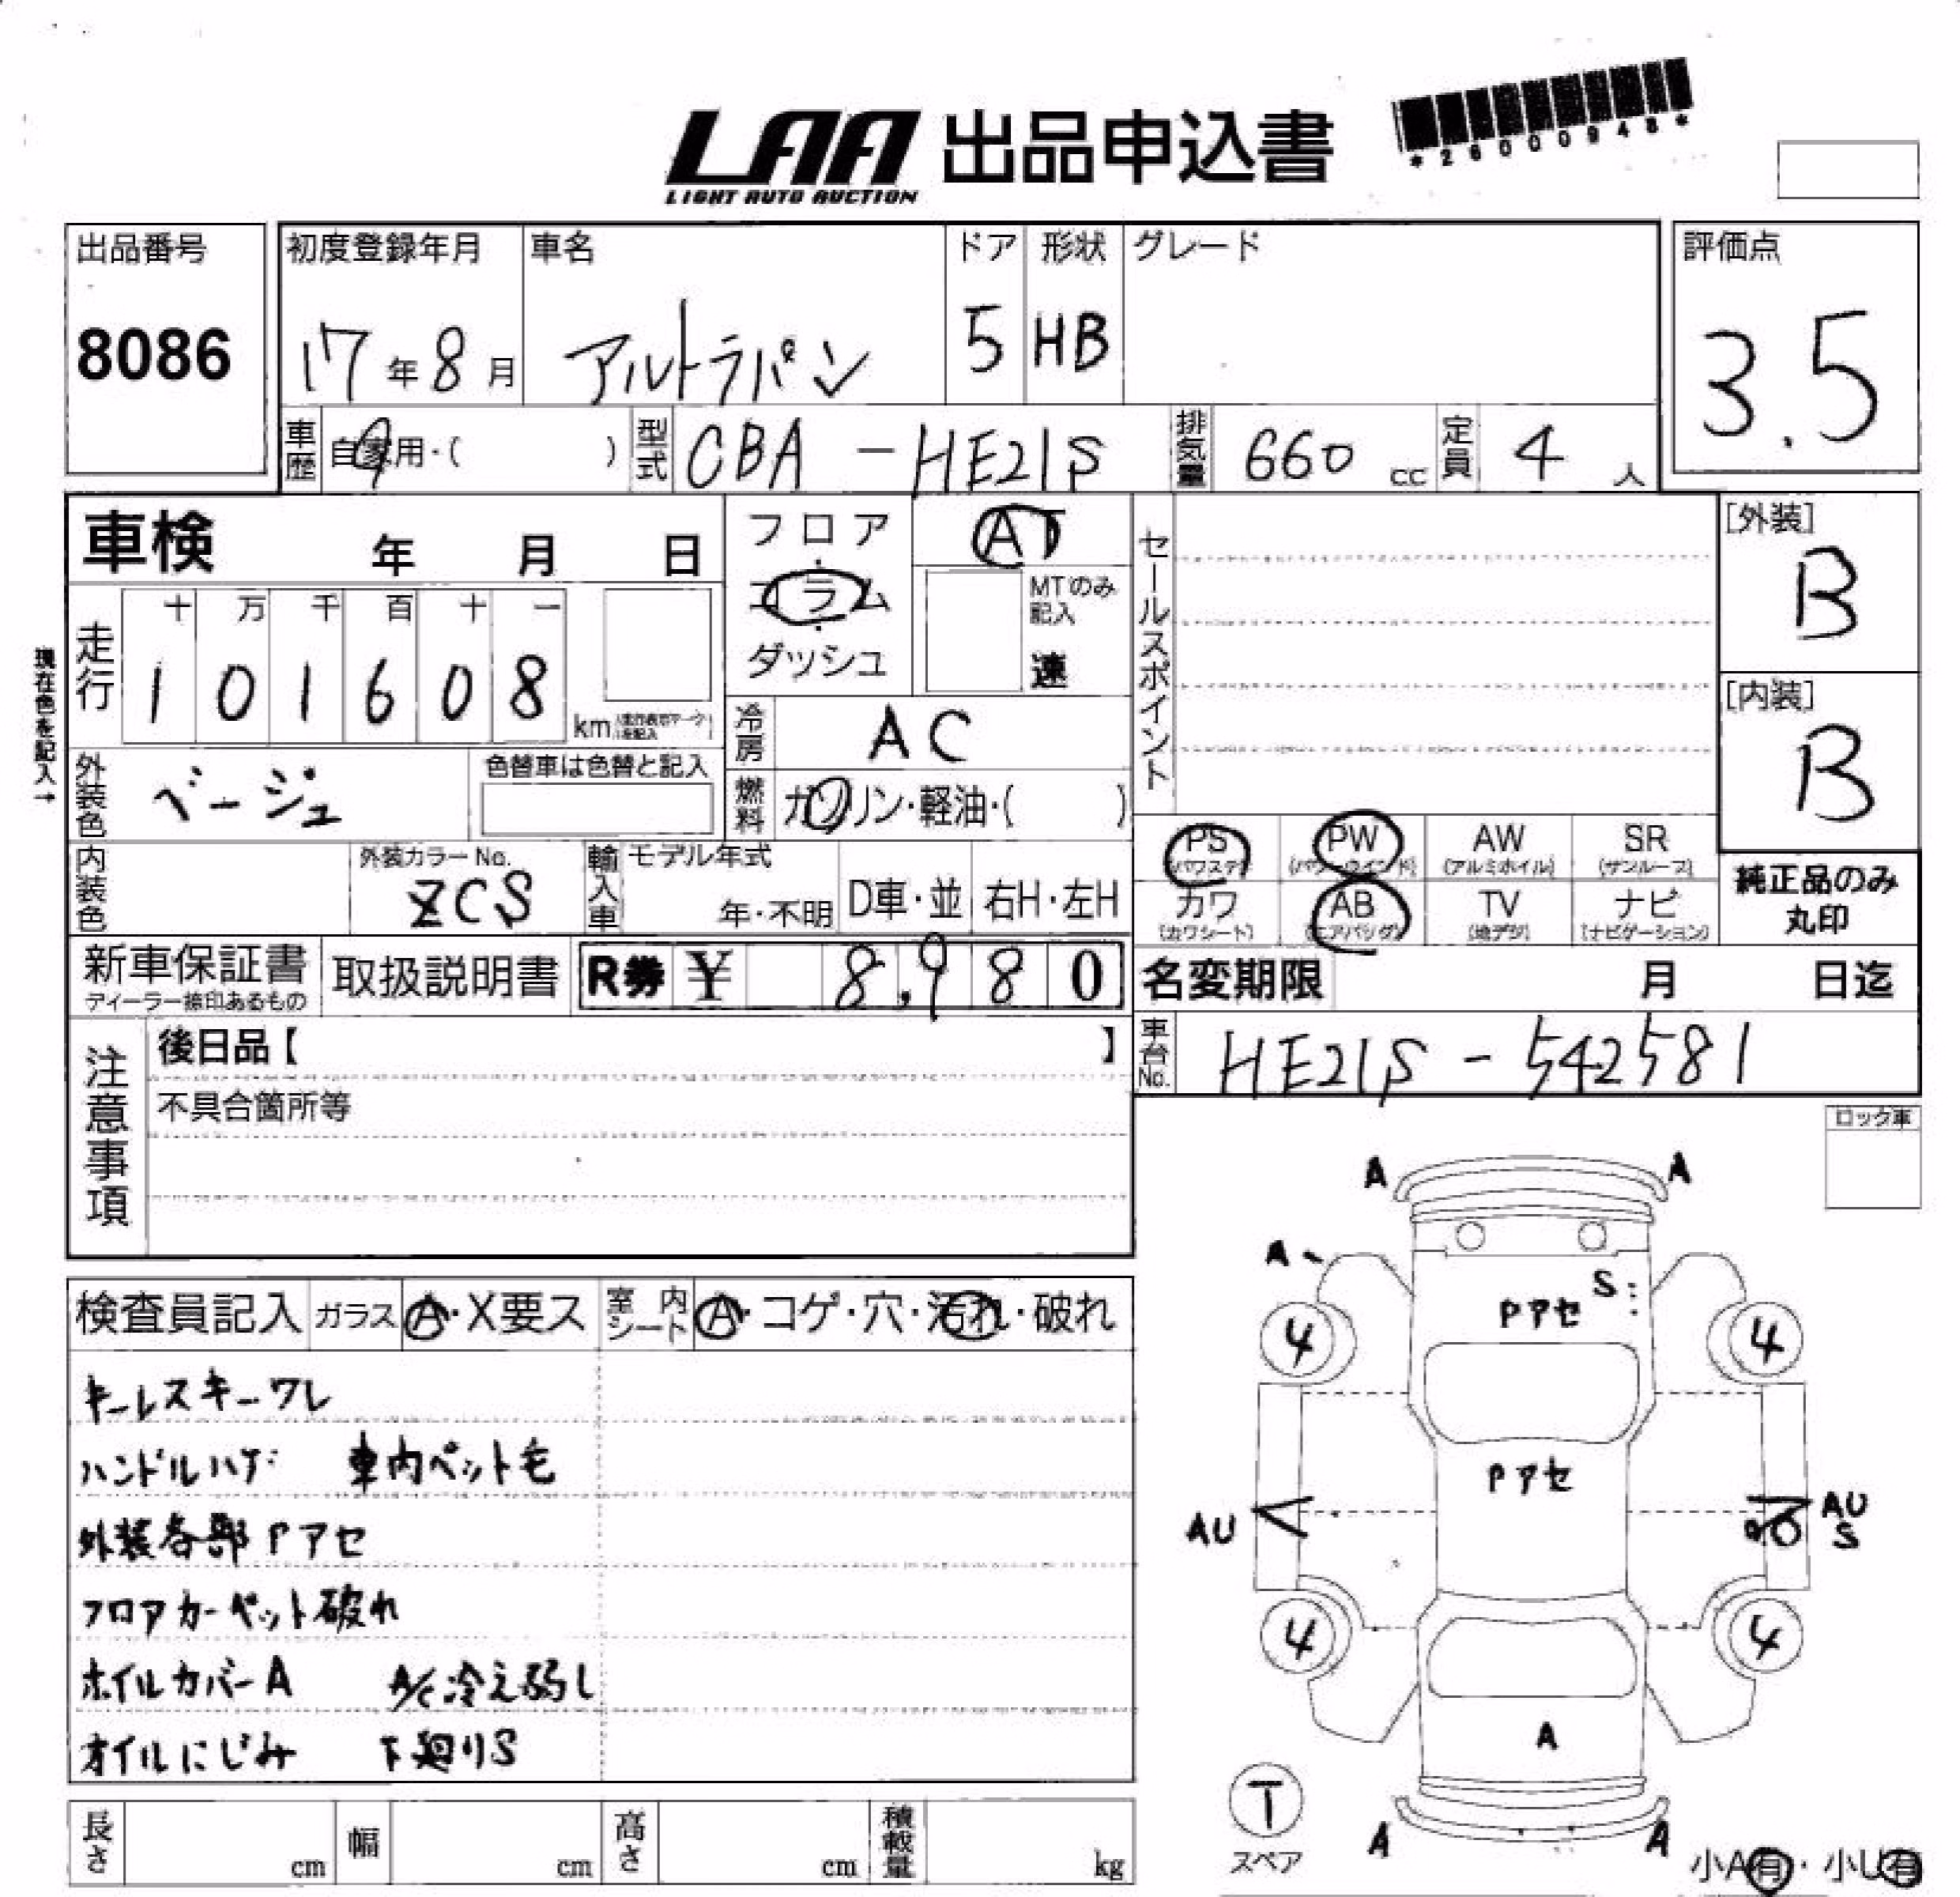 LAA 出品申込書
LIGHT AUTO AUCTION
*26000948*
出品番号
8086
初度登録年月
17年8月
車名
アルトラパン
ドア
5
形状
HB
グレード
評価点
3.5
車歴
自家用・( )
型式
CBA-HE21S
排気量
660 cc
定員
4 人
車検 年 月 日
フロア・コラム・ダッシュ
AT
MTのみ記入
速
セールスポイント
[外装]
B
[内装]
B
現在色を記入→
走行
十 万 千 百 十 一
1 0 1 6 0 8
km
冷房
AC
外装色
ベージュ
色替車は色替と記入
燃料
ガソリン・軽油・( )
PS AW PW SR
(パワステ) (パワーウインド) (アルミホイル) (サンルーフ)
カワ AB TV ナビ
(カワシート) (エアバッグ) (地デジ) (ナビゲーション)
純正品のみ
丸印
内装色
外装カラーNo.
ZCS
輸入車
モデル年式
年・不明
D車・並
右H・左H
新車保証書
取扱説明書
R券 ¥ 8,980
名変期限 月 日迄
車台No.
HE21S-542581
注意事項
後日品【 】
不具合箇所等
ロック車
検査員記入
ガラス
A・X要ス
室内シート
A・コゲ・穴・汚れ・破れ
キーレスキーワレ
ハンドルハゲ 車内ペット毛
外装各部Pアセ
フロアカーペット破れ
ホイルカバーA A/C冷え弱し
オイルにじみ 下廻りS
A A
A
S
Pアセ
4 4
Pアセ
AU
AU
S
4 4
A
T
スペア
A A
小A有・小U有
長さ cm
幅 cm
高さ cm
積載量 kg